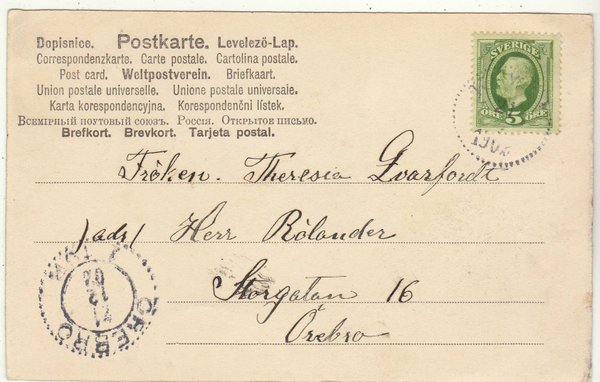 Dopisnice. Postkarte. Levelező-Lap.
Correspondenzkarte. Carte postale. Cartolina postale.
Post card. Weltpostverein. Briefkaart.
Union postale universelle. Unione postale universale.
Karta korespondencyjna. Korespondenční lístek.
Всемірный почтовый союзъ. Россія. Открытое письмо.
Brefkort. Brevkort. Tarjeta postal.
SVERIGE
ÖRE 5 ÖRE
Fröken. Theresia
adr/ Herr Rölander
Storgatan 16
Örebro
ÖREBRO